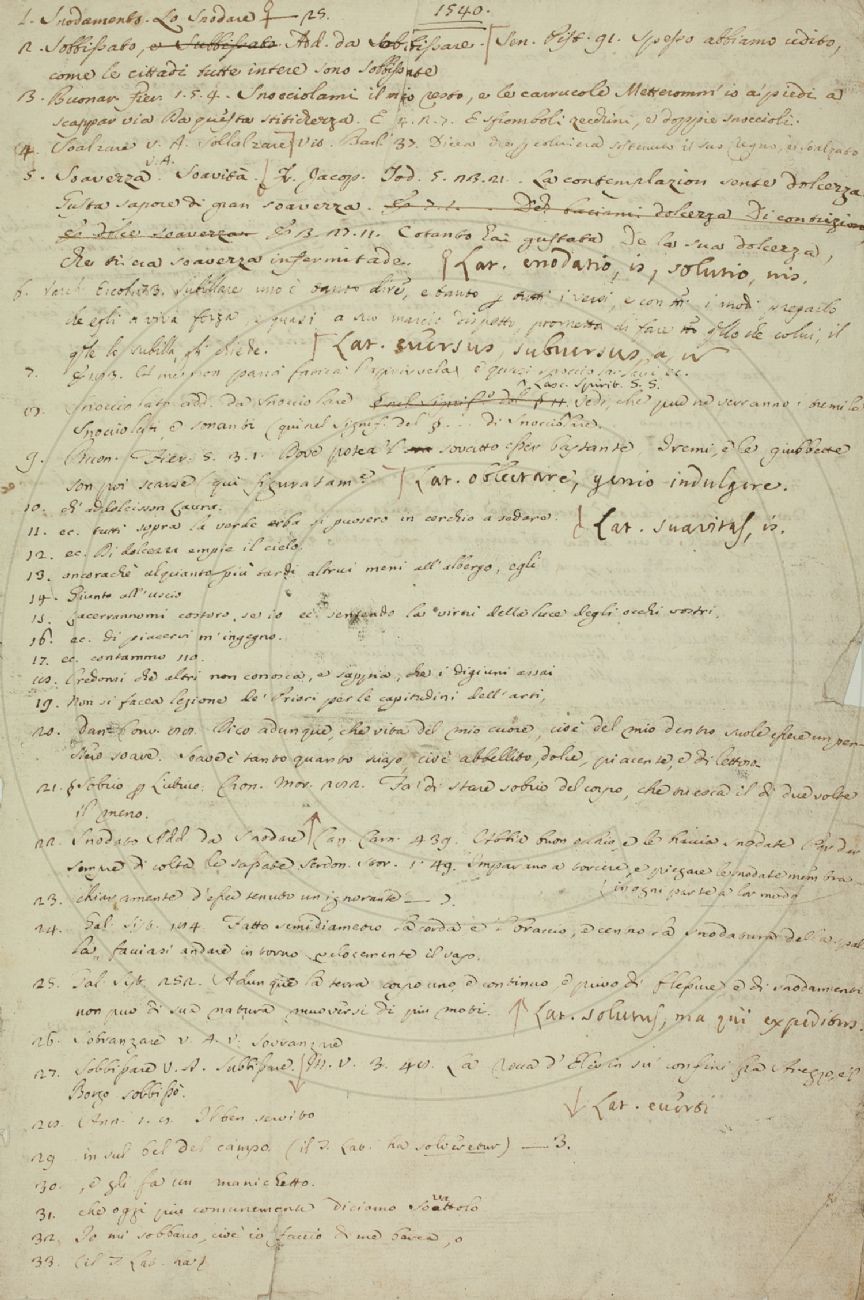 1540.
1. Snodamento. Lo Snodare 25.
2. Sobbissato, e Subbissato Add. da Sobbissare. Sen. Pist. 91. Spesso abbiamo udito,
come le cittadi tutte intere sono sobbissate
3. Buonar. Fier. 1. 5. 4. Snocciolami il resto, e le carrucole Metteronmi io a' piedi a
scappar via Da questa stitichezza. E 4. 2. 7. E spiomboli zecchini, e doppie snoccioli.
4. Soalzare v. A. Sollalzare Vit. Barl. 37. il suo regno, e soalzato
5. Soavezza v. A. Soavità Jacop. Tod. 5. 23. 21. La contemplazion sente dolcezza
Gusta sapore di gran soavezza. Del baciami dolcezza Di contrizion
E dolce soavezza E 3. 17. 11. Cotanto hai gustata De la sua dolcezza,
che ti cia soavezza infermitade. Lat. enodatio, is, solutio, nis.
6. Varch. Ercol. 73. Subillare uno è tanto dire, e tanto i versi, e con i modi pregarlo
che egli a viva forza e quasi a suo marcio dispetto, prometta di fare che colui, il
le subilla, gli chiede. Lat. eversus, subversus, a, u
7. ec.
8. Snocciolato add. da Snocciolare Lasc. Spirit. 5. 5. Vedi, che pur ne verranno i tremila
Snocciolati, e sonanti (qui nel signif. del di Snocciolare.
9. Buon. Fier. 5. 3. 1. Dove potea'l sovatto esser bastante Dremi, e le giubbette
son poi scarse (qui figuratam.e Lat. oblectare, genio indulgere.
10. ch' addolcisson Laura.
11. ec. tutti sopra la verde erba si puosero in cerchio a sedere. Lat. suavitas, is.
12. ec. Di dolcezza empie il cielo.
13. ancorachè alquanto più tardi altrui meni all'albergo, egli
14. Giunto all'uscio
15. Zacerrannomi costoro, se io ec. sentendo la virtù della luce degli occhi vostri,
16. ec. di piacervi m'ingegno.
17. ec. contammo 110.
18. Credonsi che altri non conosca, e sappia, che i digiuni assai
19. Non si facea lezione de' Priori per le capitudini dell'arti,
20. Dant. Conv. Dico adunque, che vita del mio cuore, cioè del mio dentro suole essere un pen-
siero soave. Soave è tanto quanto suaso, cioè abbellito, dolce, piacente, e dilettoso.
21. Sobrio Lubrico. Cron. Mor. 282. Fa' di stare sobrio del corpo, che tu esca il dì due volte
il meno.
22. Snodato Add. da Snodare Can. Carn. 439. buon occhio, e le braccia snodate Per dar
sempre di colta le sassate Serdon. Stor. 1. 49. Imparano a torcere, e piegare le snodate membra
in ogni parte a lor modo
23. chiaramente d'esser tenuto un ignorante 3.
24. Gal. Sist. 184. Fatto semidiametro la corda e'l braccio, e centro la snodatura della spal-
la, facciasi andare intorno velocemente il vaso.
25. Gal. Sist. 252. Adunque la terra corpo uno, e continuo, e privo di flessure, e di snodamenti
non può di sua natura muoversi di più moti. Lat. solutus, ma qui expeditus.
26. Sobranzare v. A. v. Sovranzare
27. Sobbissare V. A. Subbissare. M. V. 3. 48. La rocca d'Elci in su' confini fra Arezzo, e'l
Borgo sobbissò. Lat. everti
28. Ann. 1. 9. Il ben servito
29. in sul bel del campo. (il T. Lat. ha solveretur) 3.
30. , e gli fa un manichetto.
31. che oggi più comunemente diciamo
32. Io mi sobbarco, cioè io faccio di me barca, o
33. (il T. Lat. ha